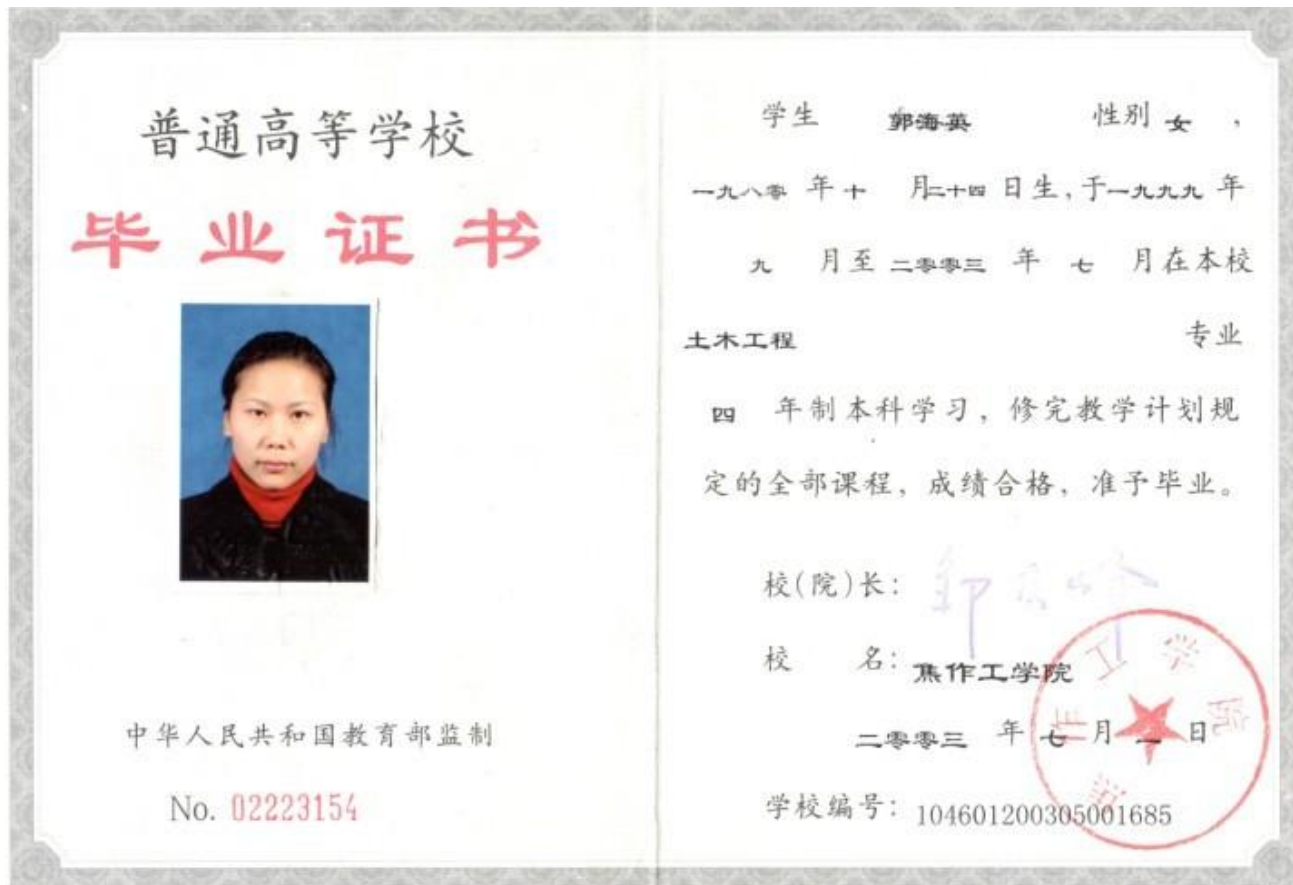 普通高等学校
毕业证书
中华人民共和国教育部监制
No. 02223154
学生 郭海英 性别 女 ,
一九八零 年 十 月二十四 日生,于一九九九 年
九 月至 二零零三 年 七 月在本校
土木工程 专业
四 年制本科学习，修完教学计划规
定的全部课程，成绩合格，准予毕业。
校(院)长:
校 名: 焦作工学院
二零零三 年 七 月 一 日
学校编号: 104601200305001685
焦作工学院